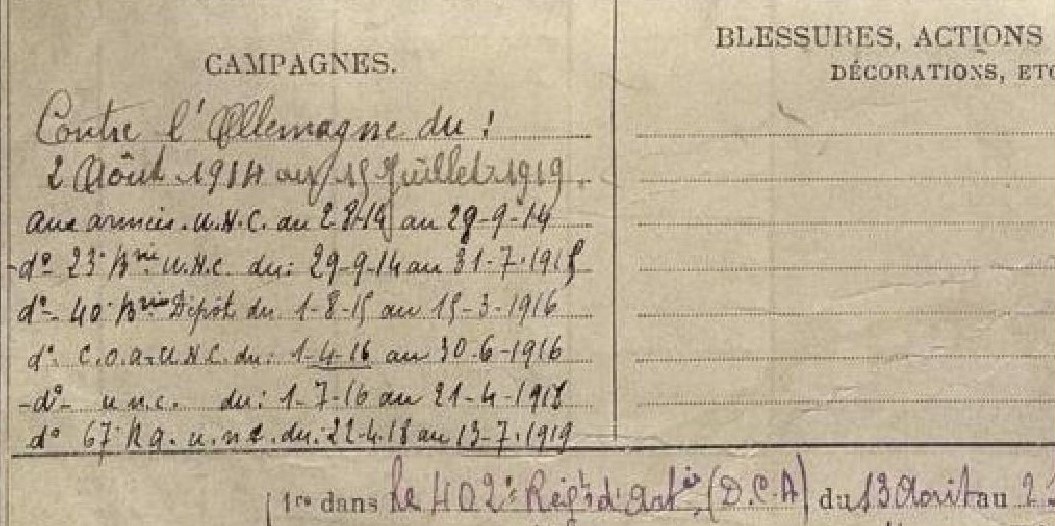 CAMPAGNES.
Contre l'Allemagne du :
2 Août 1914 au 15 Juillet 1919.
aux armées. U.N.C. du 2-8-14 au 29-9-14
-do 23e Brie U.N.C. du: 29-9-14 au 31-7-1915
do- 40e Brie Dépôt du 1-8-15 au 15-3-1916
do C.O.A. U.N.C. du: 1-4-16 au 30-6-1916
-do- u.n.c. du: 1-7-16 au 21-4-1918
do 67e R.A. u.n.c. du: 22-4-18 au 13-7-1919
BLESSURES, ACTIONS
DÉCORATIONS, ETC
1re dans le 402e Régt d'Artie (D.C.A) du 13 Avril au 2